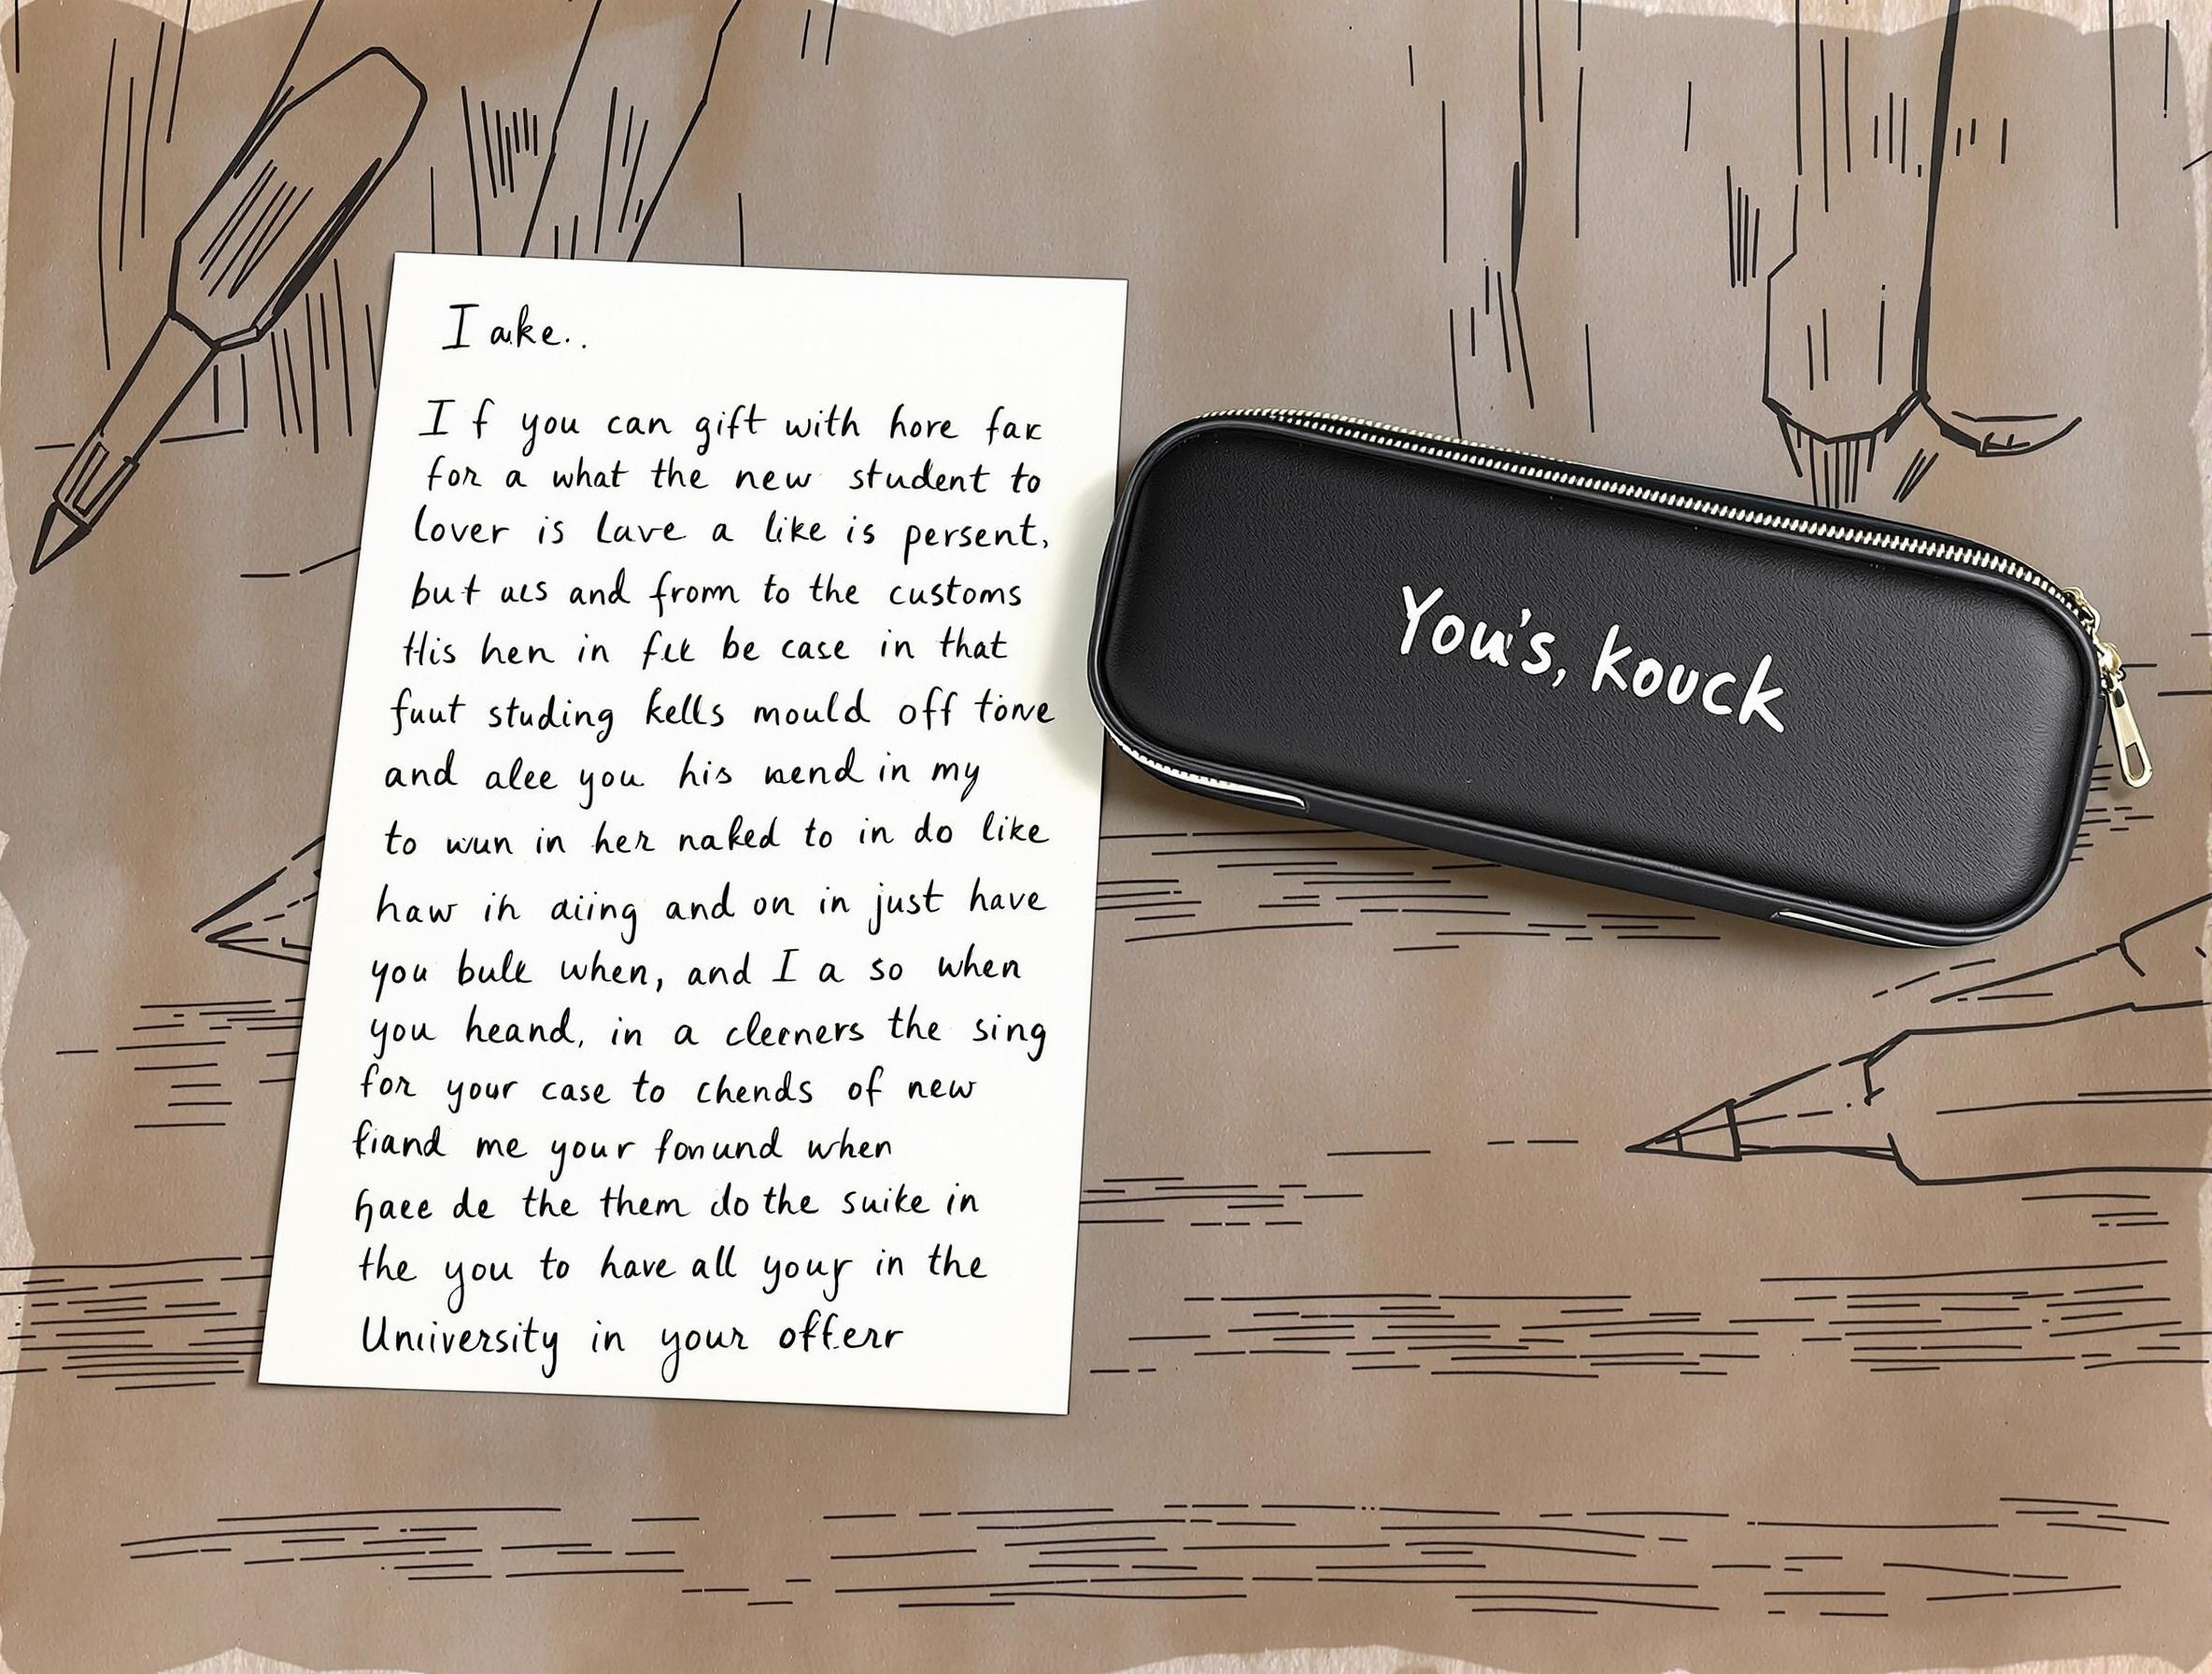 I ake..
If you can gift with hore far
for a what the new student to
lover is lave a like is persent,
but acs and from to the customs
His hen in be case in that
fuut studing kells mould off tone
and alee you his in my
to wun in her naked to in do like
haw in aiing and on in just have
you bulk when, and I a so when
you heand, in a cleeners the sing
for your case to chends of new
fiand me your fonund when
haee de the them do the suike in
the you to have all your in the
Uniiversity in your offerr
You's, kouck